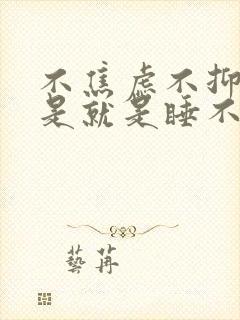 不焦虑不抑
是就是睡不
藝苒